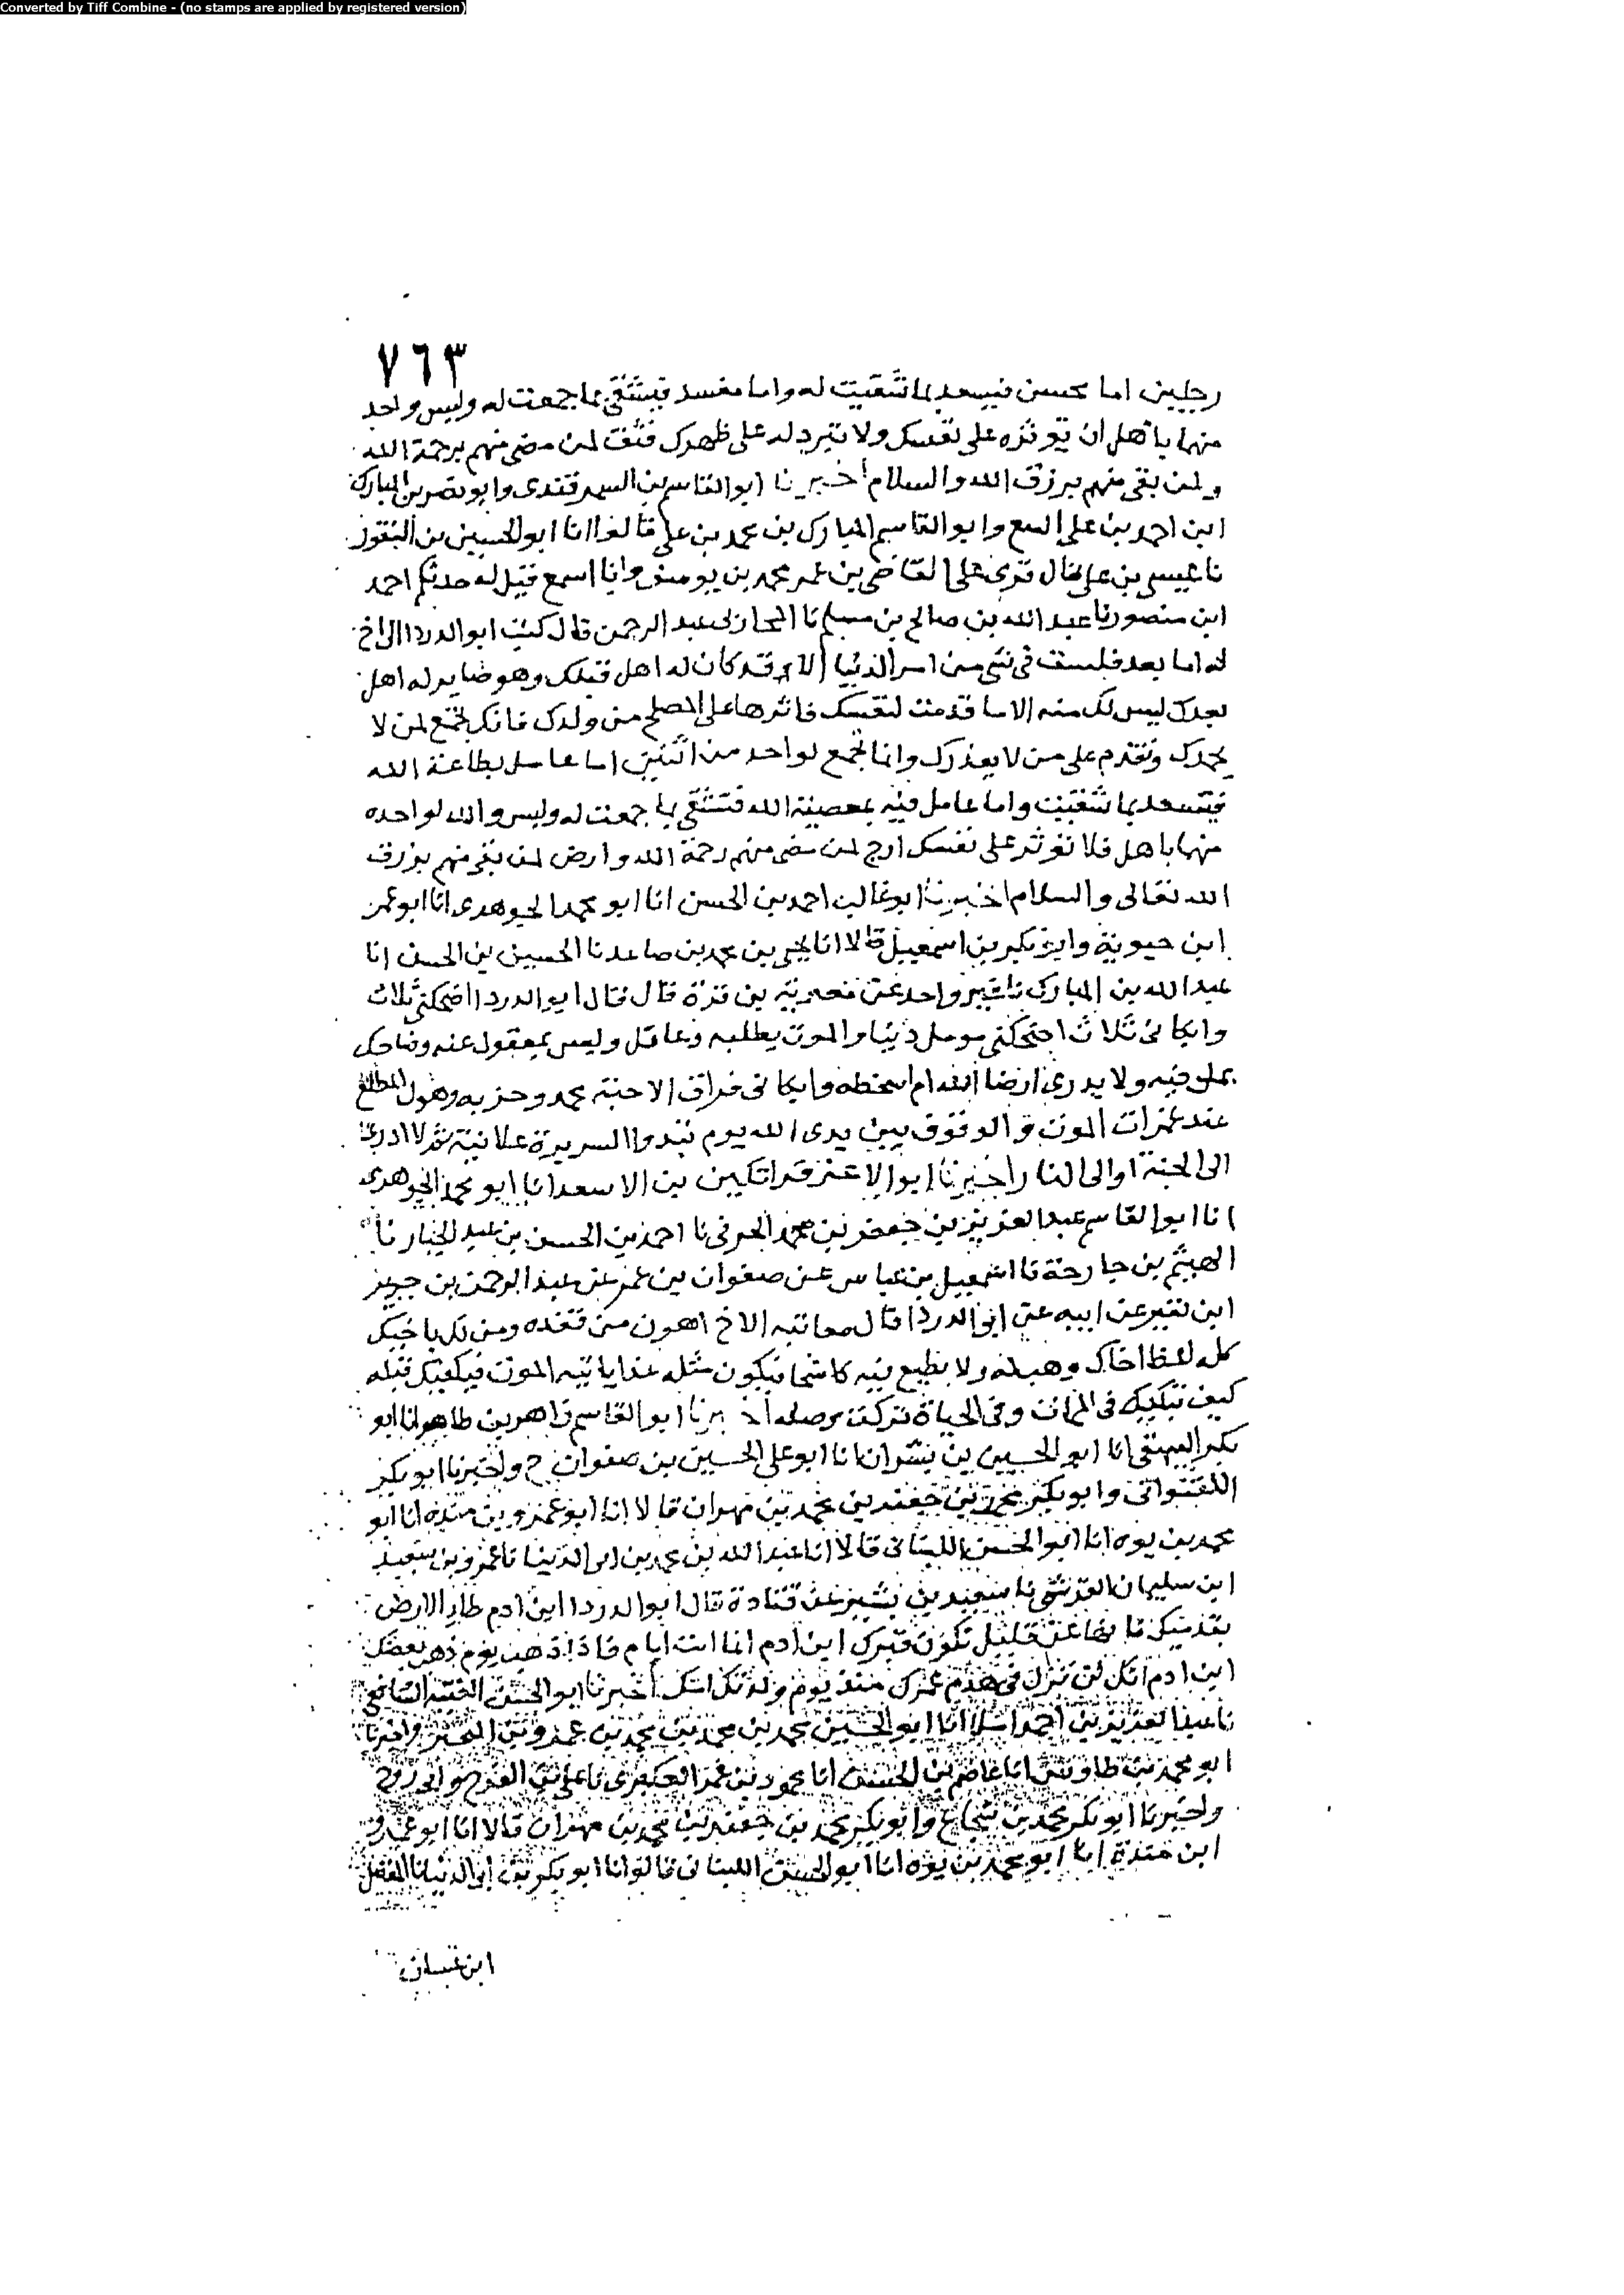 Converted by Tiff Combine - (no stamps are applied by registered version)
٧٦٣
رجلين اما محسن فيسعد بما شقيت له واما مفسد فيشقى بما جمعت له وليس واحد
منهما باهل ان توثره على نفسك ولا تبرد له على ظهرك فثق لمن مضى منهم برحمة الله
ولمن بقى منهم برزق الله والسلام أخبرنا ابو القاسم بن السمرقندى وابو نصر بن المبارك
ابن احمد بن على البيع وابو القاسم المبارك بن محمد بن على قالوا انا ابو الحسين بن النقور
نا عيسى بن على قال قرى على القاضى بن عمر محمد بن يوسف وانا اسمع قيل له حدثكم احمد
ابن منصور نا عبد الله بن صالح بن مسلم نا المحاربى عبد الرحمن قال كتب ابو الدردا الى اخ
له اما بعد فلست فى شى من امر الدنيا الا وقد كان له اهل قبلك وهو صاير له اهل
بعدك ليس لك منه الا ما قدمت لنفسك فاثرها على المصلح من ولدك فانك تجمع لمن لا
يحمدك وتقدم على من لا يعذرك وانما تجمع لواحد من اثنين اما عامل بطاعة الله
فيسعد بما شقيت واما عامل فيه بمعصية الله فتشقى بما جمعت له وليس والله لواحده
منهما باهل فلا توثر على نفسك ارج لمن مضى منهم رحمة الله وارض لمن بقى منهم برزق
الله تعالى والسلام اخبرنا ابو غالب احمد بن الحسن انا ابو محمد الجوهرى انا ابو عمر
ابن حيوية وابو بكر بن اسمعيل قالا انا يحيى بن محمد بن صاعد نا الحسين بن الحسن انا
عبد الله بن المبارك نا غير واحد عن معوية بن قرة قال قال ابو الدردا اضحكنى ثلاث
وابكانى ثلاث اضحكنى مومل دنيا والموت يطلبه وغافل وليس بمغفول عنه وضاحك
بملى فيه ولا يدرى ارضا الله ام اسخطه وابكانى فراق الاحبة محمد وحزبه وهول المطلع
عند غمرات الموت والوقوف بين يدى الله يوم تبدوا السريرة علانية ثم لا ادرى
الى الجنة او الى النار اخبرنا ابو الاعز قراتكين بن الاسعد انا ابو محمد الجوهرى
انا ابو القاسم عبد العزيز بن جعفر بن محمد الخرقى نا احمد بن الحسن بن عبد الجبار نا
الهيثم بن خارجة نا اسمعيل بن عياش عن صفوان بن عمر عن عبد الرحمن بن جبير
ابن نفير عن ابيه عن ابى الدردا قال معاتبه الاخ اهون من فقده ومن لك باخيك
كله اعط اخاك وهب له ولا تطيع فيه كاشحا فيكون مثله غدا ياتيه الموت فيكفيك قبله
كيف تبكيك فى الممات وفى الحياة تركت وصله أخبرنا ابو القاسم زاهر بن طاهر انا ابو
بكر البيهقى انا ابو الحسين بن بشران انا ابو على الحسين بن صفوان ح واخبرنا ابو بكر
اللفتوانى وابو بكر محمد بن جعفر بن محمد بن مهران قالا انا ابو عمرو بن منده انا ابو
محمد بن يوه انا ابو الحسن اللبنانى قالا انا عبد الله بن محمد بن ابى الدنيا نا عمرو بن سعيد
ابن سليمان القرشى نا سعيد بن بشير عن قتادة قال ابو الدردا ابن ادم طا الارض
بقدميك فانها عن قليل تكون قبرك ابن ادم انما انت ايام فاذا ذهب يوم ذهب بعضك
ابن ادم انك لن تزل فى هدم عمرك منذ يوم ولدتك امك أخبرنا ابو الحسن الفقيه الشافعى
نا عبد العزيز بن احمد املا انا ابو الحسين محمد بن محمد بن محمد بن عمرو بن البخترى واخبرنا
ابو محمد بن طاوس انا عاصم بن الحسن انا محمود بن عمر العكبرى نا على بن الفرج بن ابى روح
واخبرنا ابو بكر محمد بن شجاع وابو بكر محمد بن جعفر بن محمد بن مهران قالا انا ابو عمرو
ابن مندة انا ابو محمد بن يوه انا ابو الحسن اللبنانى قالوا انا ابو بكر بن ابى الدنيا نا المفضل
ابن غسان